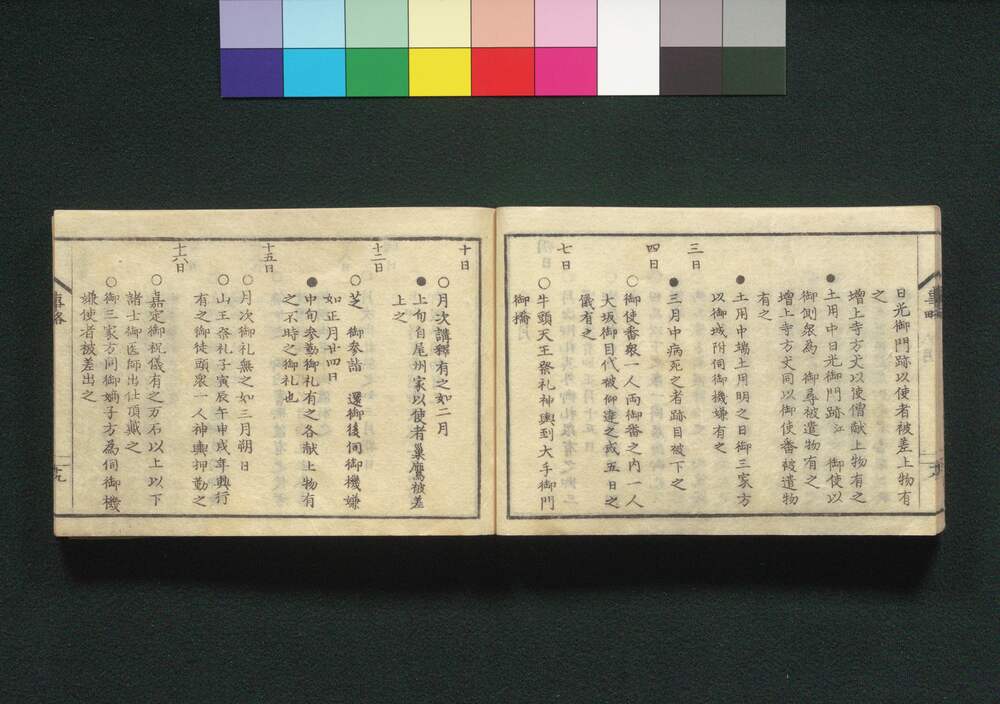 日光御門跡以使者被差上物有
之
増上寺方丈以使僧献上物有之
●土用中日光御門跡江 御使以
御側衆為 御尋被遣物有之
増上寺方丈同以御使番被遣物
有之
●土用中端土用明之日御三家方
以御城附伺御機嫌有之
三日
●三月中病死之者跡目被下之
四日
○御使番衆一人両御番之内一人
大坂御目代被仰達之或五日之
儀有之
七日
○牛頭天王祭礼神輿到大手御門
御橋
十日
○月次講釋有之如二月
●上旬自尾州家以使者巣鷹被差
上之
十二日
○芝 御参詣 還御後伺御機嫌
如正月廿四日
●中旬参勤御礼有之各献上物有
之不時之御礼也
十五日
○月次御礼無之如三月朔日
○山王祭礼子寅辰午申戌年興行
有之御徒頭衆一人神輿押勤之
十六日
○嘉定御祝儀有之万石以上以下
諸士御医師出仕頂戴之
○御三家方同御嫡子方為伺御機
嫌使者被差出之